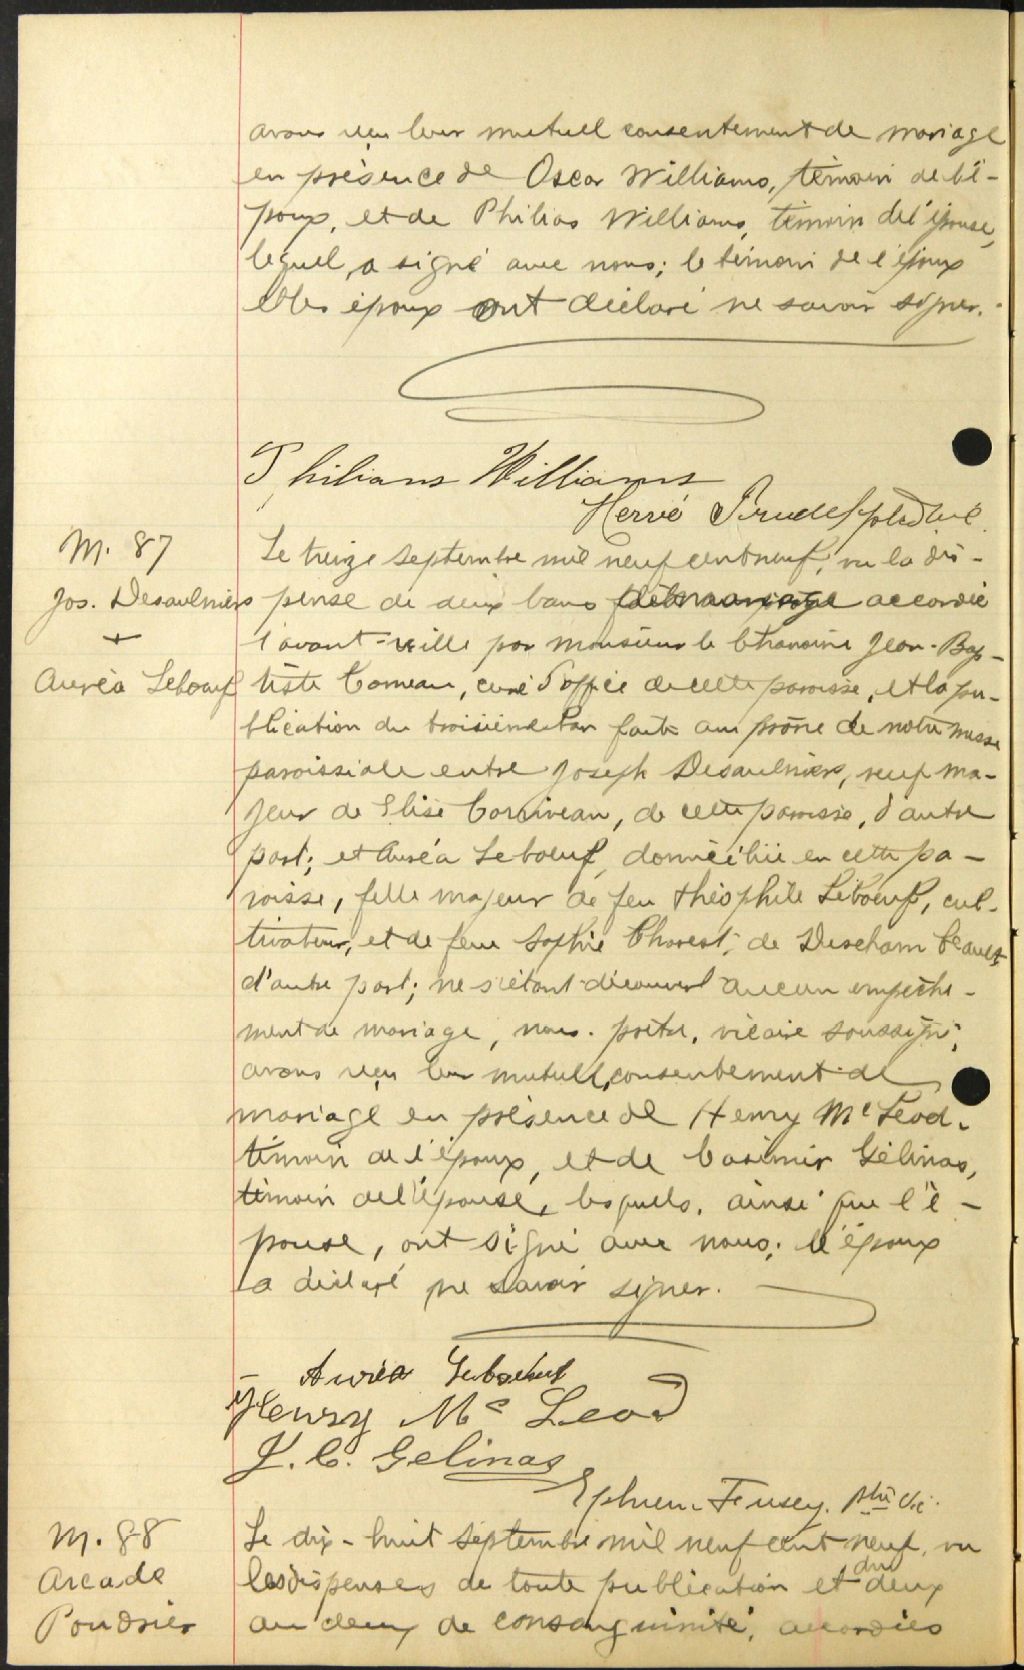 avons reçu leur mutuel consentement de mariage
en présence de Oscar Williams, témoin de l'é-
poux, et de Philias Williams, témoin de l'épouse,
lequel a signé avec nous; le témoin de l'époux
et les époux ont déclaré ne savoir signer.
Philians Williams
Hervé Trudel ptre
M. 87
Jos. Desaulniers
+
Auréa Leboeuf
Le treize septembre mil neuf cent neuf, vu la dis-
pense de deux bans accordée
l'avant-veille par monsieur le Chanoine Jean-Bap-
tiste Comeau, curé d'office de cette paroisse, et la pu-
blication du troisième ban faite au prône de notre messe
paroissiale entre Joseph Desaulniers, veuf ma-
jeur de Elise Corriveau, de cette paroisse, d'autre
part; et Auréa Leboeuf, domiciliée en cette pa-
roisse, fille majeur de feu Théophile Leboeuf, cul-
tivateur, et de feue Sophie Charest, de Deschambeault,
d'autre part; ne s'étant découvert aucun empêche-
ment de mariage, nous, prêtre, vicaire soussigné,
avons reçu leur mutuel consentement de
mariage en présence de Henry McLeod,
témoin de l'époux, et de Casimir Gélinas,
témoin de l'épouse, lesquels, ainsi que l'é-
pouse, ont signé avec nous; l'époux
a déclaré ne savoir signer.
Auréa Leboeuf
Henry Mc Leod
J. C. Gelinas
Ephrem Fusey, ptre vic.
M. 88
Arcade
Poudrier
Le dix-huit septembre mil neuf cent neuf, vu
les dispenses de toute publication et du deux
au deux de consanguinité, accordées